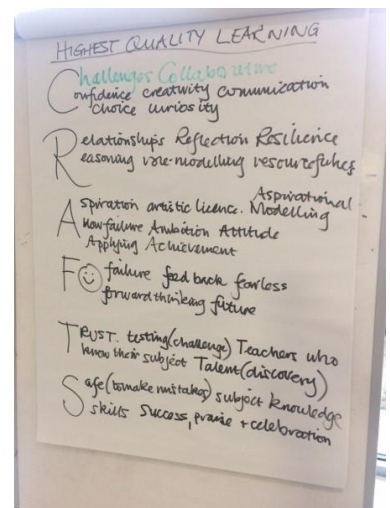 HIGHEST QUALITY LEARNING
Challenges Collaborative
Confidence creativity communication
choice curiosity
Relationships Reflection Resilience
Reasoning role-modelling resourcefulness
Aspiration artistic licence. Aspirational Modelling
Allow failure Ambition Attitude
Applying Achievement
Failure feed back fearless
forward thinking future
TRUST. testing (challenge) Teachers who
know their subject Talent (discovery)
Safe (to make mistakes) subject knowledge
skills Success, praise + celebration